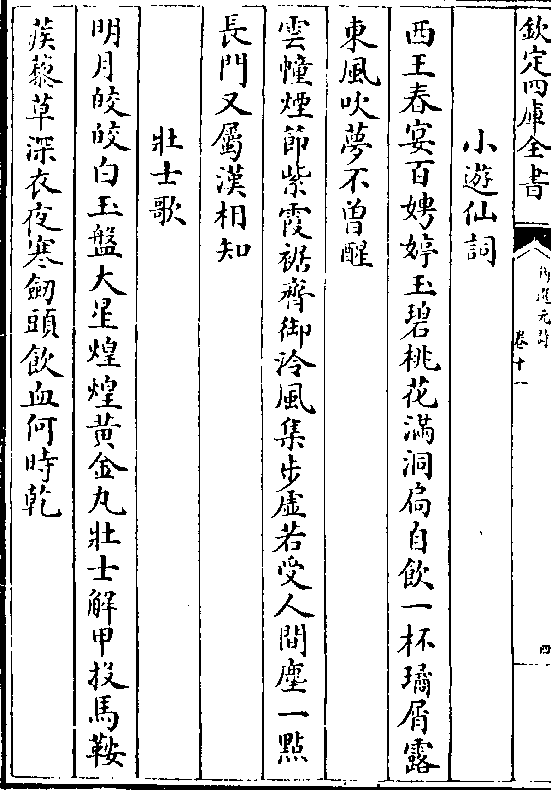 欽定四庫全書
御選元詩
卷十一
四
小遊仙詞
西王春宴百娉婷玉碧桃花滿洞扃自飲一杯璚屑露
東風吹夢不曾醒
雲幢煙節紫霞裾齊御泠風集步虛若受人間塵一點
長門又屬漢相知
壯士歌
明月皎皎白玉盤大星煌煌黃金丸壯士解甲投馬鞍
蒺藜草深衣夜寒劒頭飲血何時乾